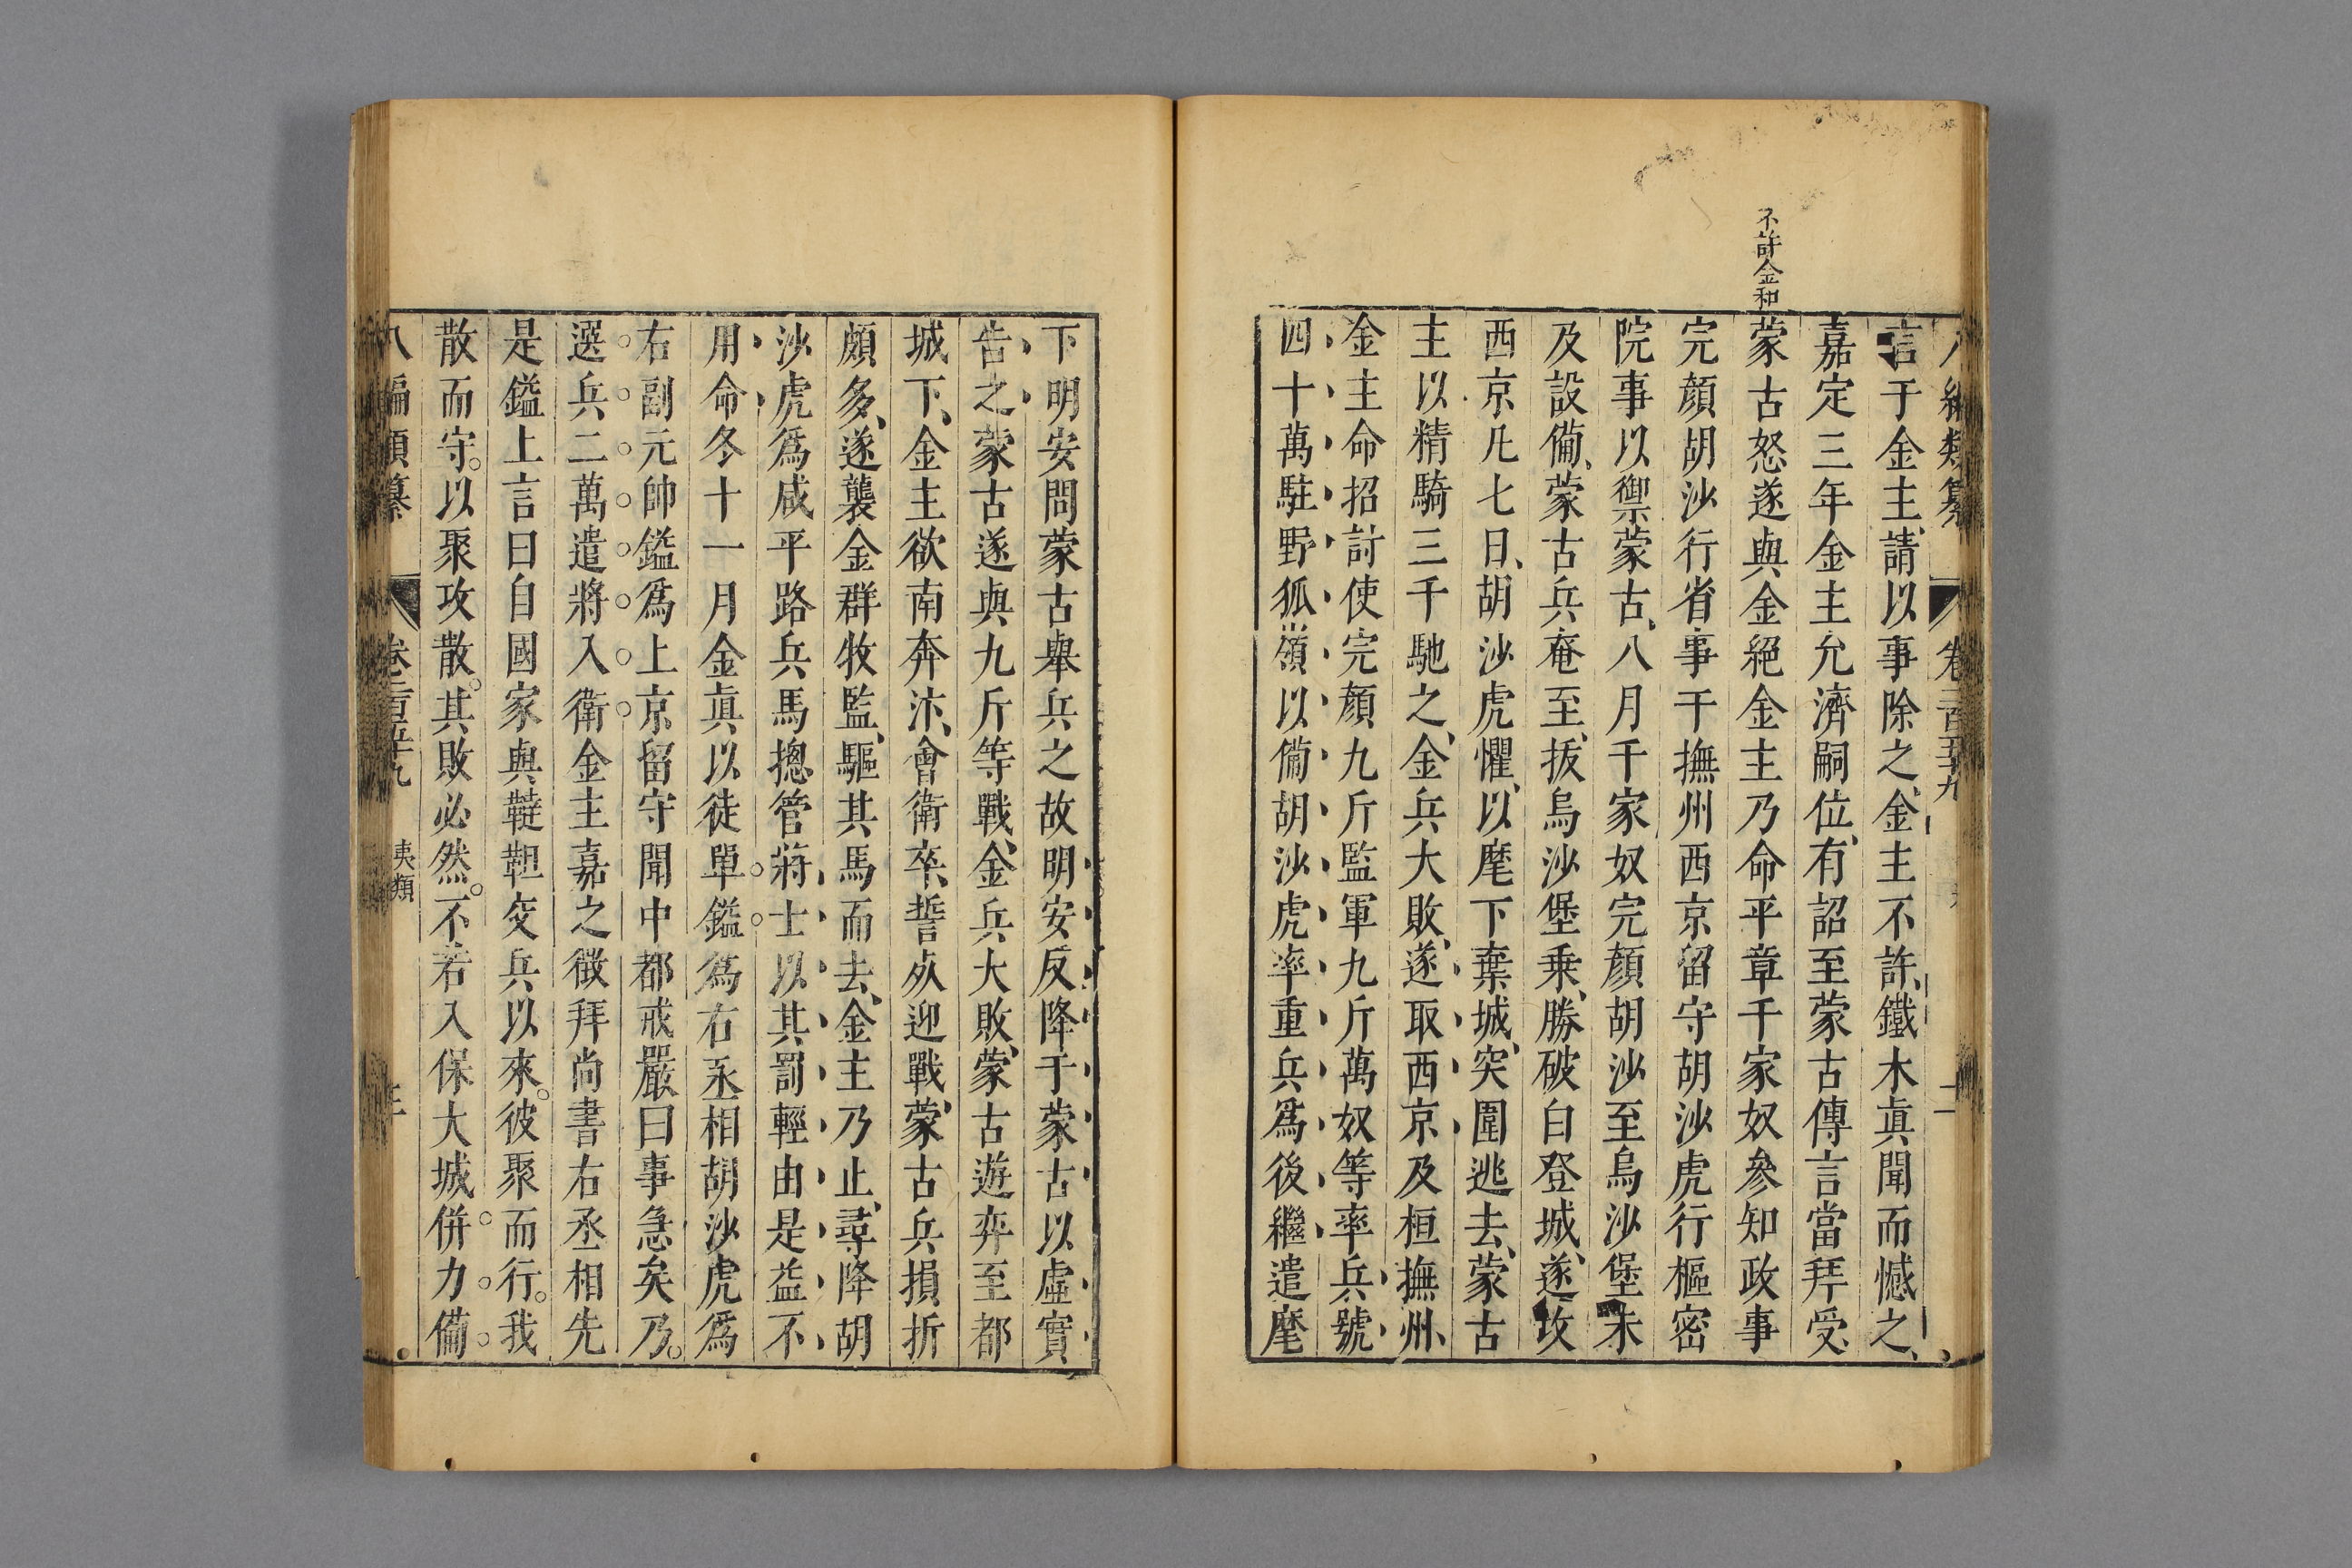 八編類纂 卷二百五十九
不許金和
言于金主請以事除之金主不許鐵木真聞而憾之
嘉定三年金主允濟嗣位有詔至蒙古傳言當拜受
蒙古怒遂與金絕金主乃命平章千家奴參知政事
完顏胡沙行省事于撫州西京留守胡沙虎行樞密
院事以禦蒙古八月千家奴完顏胡沙至烏沙堡未
及設備蒙古兵奄至拔烏沙堡乗勝破白登城遂攻
西京凡七日胡沙虎懼以麾下棄城突圍逃去蒙古
主以精騎三千馳之金兵大敗遂取西京及桓撫州
金主命招討使完顏九斤監軍九斤萬奴等率兵號
四十萬駐野狐嶺以備胡沙虎率重兵爲後繼遣麾
下明安問蒙古舉兵之故明安反降于蒙古以虛實
告之蒙古遂與九斤等戰金兵大敗蒙古遊奕至都
城下金主欲南奔汴會衛卒誓死迎戰蒙古兵損折
頗多遂襲金群牧監驅其馬而去金主乃止尋降胡
沙虎爲咸平路兵馬摠管蔣士以其罰輕由是益不
用命冬十一月金真以徒單鎰爲右丞相胡沙虎爲
右副元帥鎰爲上京留守聞中都戒嚴曰事急矣乃
選兵二萬遣將入衛金主嘉之徵拜尚書右丞相先
是鎰上言曰自國家與韃靼交兵以來彼聚而行我
散而守以聚攻散其敗必然不若入保大城併力備
八編類纂 卷二百五十九 夷類